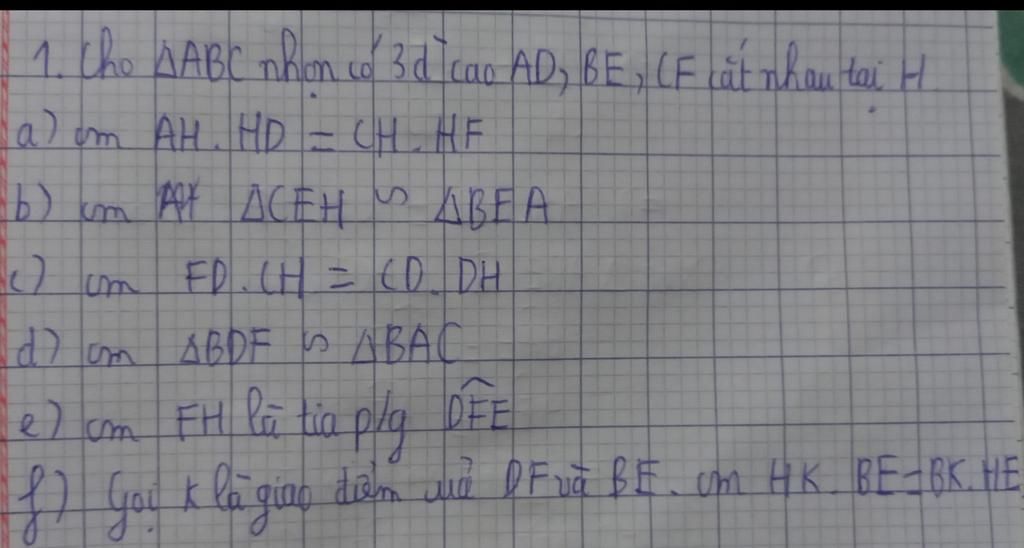 1. Cho ΔABC nhọn có 3 đ' cao AD, BE, CF cắt nhau tại H
a) cm AH. HD = CH. HF
b) cm ΔCEH ∽ ΔBEA
c) cm FD. CH = CD. DH
d) cm ΔBDF ∽ ΔBAC
e) cm FH là tia p/g \widehat{DFE}
f) Gọi K là giao điểm của DF và BE. cm HK. BE = BK. HE